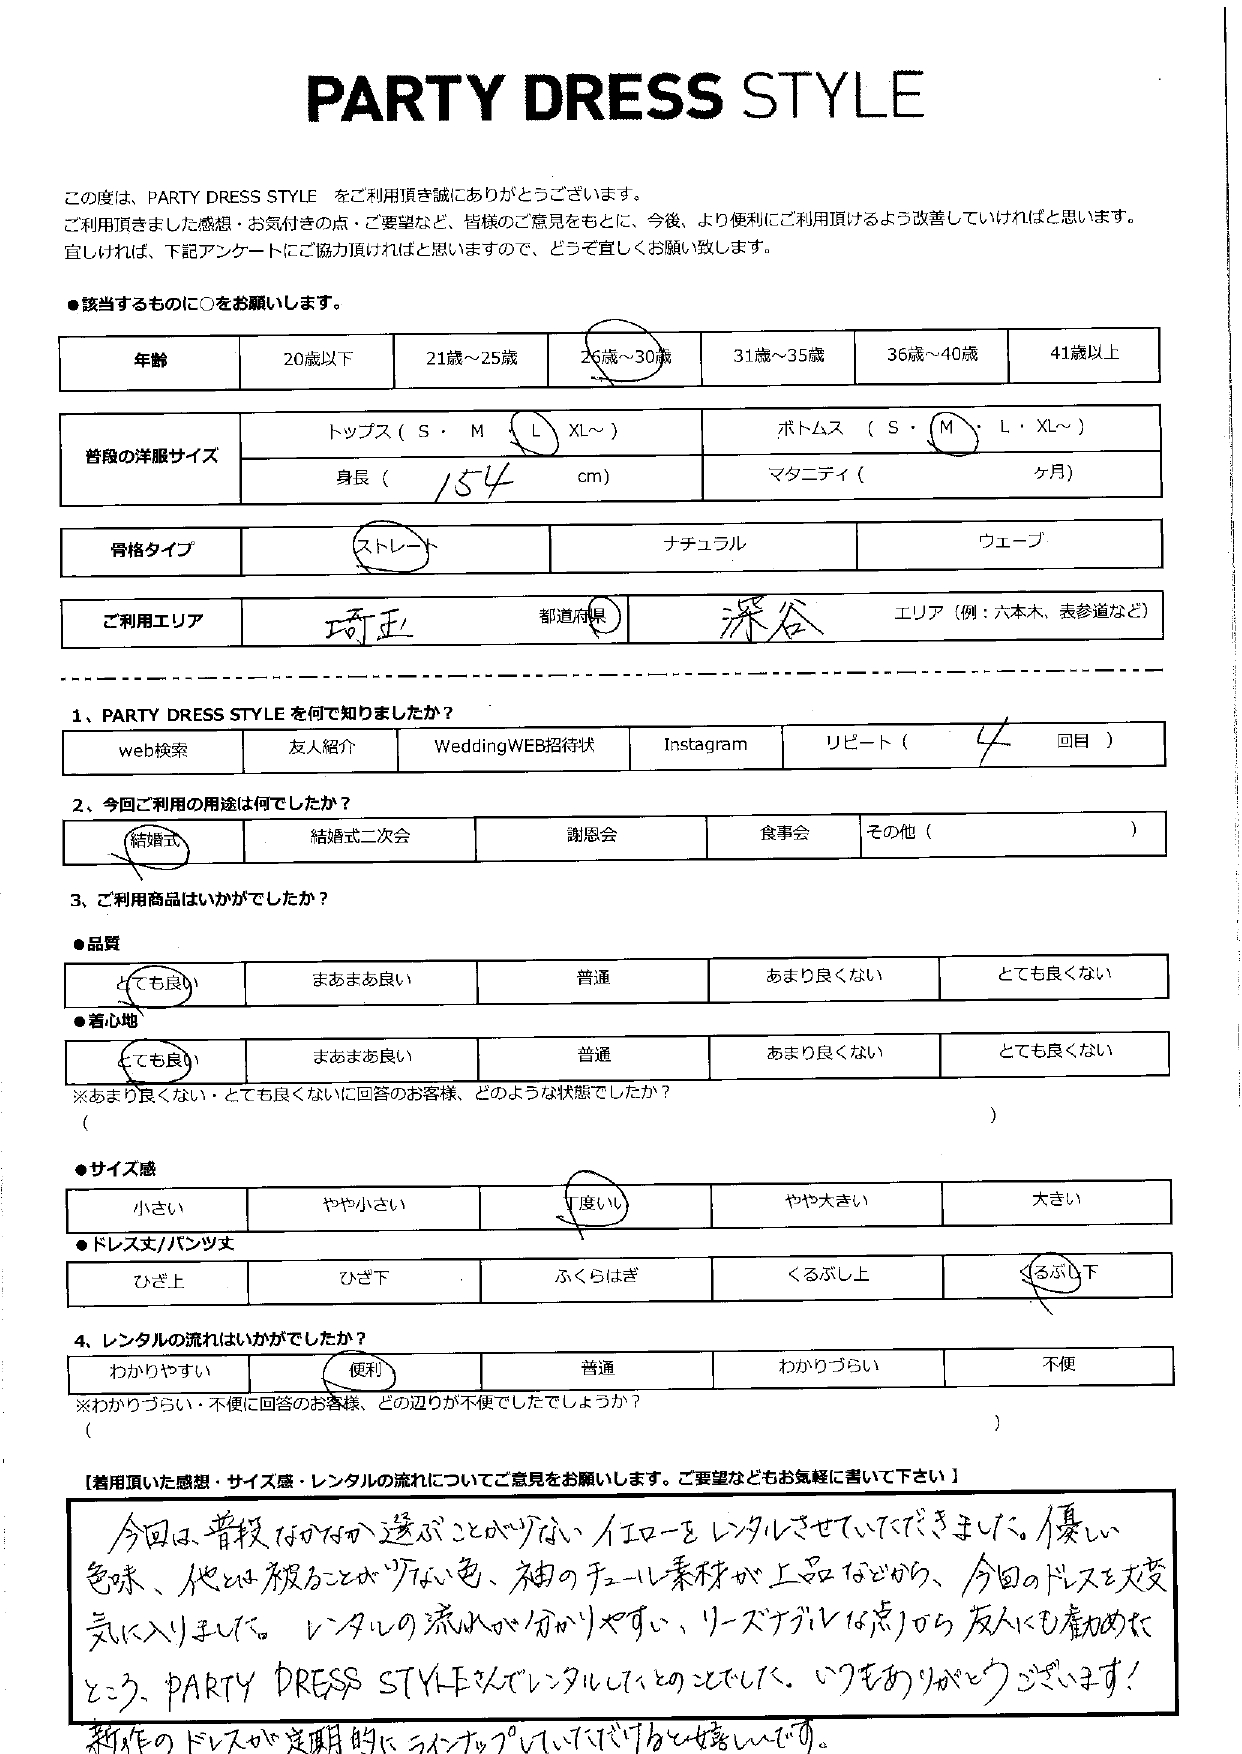 PARTY DRESS STYLE
この度は、PARTY DRESS STYLE をご利用頂き誠にありがとうございます。
ご利用頂きました感想・お気付きの点・ご要望など、皆様のご意見をもとに、今後、より便利にご利用頂けるよう改善していければと思います。
宜しければ、下記アンケートにご協力頂ければと思いますので、どうぞ宜しくお願い致します。
●該当するものに○をお願いします。
年齢 20歳以下 21歳～25歳 26歳～30歳 31歳～35歳 36歳～40歳 41歳以上
普段の洋服サイズ トップス ( S ・ M ・ L XL～ ) ボトムス ( S ・ M ・ L ・ XL～ )
身長 ( 154 cm) マタニティ ( ヶ月)
骨格タイプ ストレート ナチュラル ウェーブ
ご利用エリア 埼玉 都道府県 深谷 エリア（例：六本木、表参道など）
1、PARTY DRESS STYLE を何で知りましたか？
web検索 友人紹介 WeddingWEB招待状 Instagram リピート ( 4 回目 )
2、今回ご利用の用途は何でしたか？
結婚式 結婚式二次会 謝恩会 食事会 その他 ( )
3、ご利用商品はいかがでしたか？
●品質
とても良い まあまあ良い 普通 あまり良くない とても良くない
●着心地
とても良い まあまあ良い 普通 あまり良くない とても良くない
※あまり良くない・とても良くないに回答のお客様、どのような状態でしたか？
( )
●サイズ感
小さい やや小さい 丁度いい やや大きい 大きい
●ドレス丈/パンツ丈
ひざ上 ひざ下 ふくらはぎ くるぶし上 くるぶし下
4、レンタルの流れはいかがでしたか？
わかりやすい 便利 普通 わかりづらい 不便
※わかりづらい・不便に回答のお客様、どの辺りが不便でしたでしょうか？
( )
【着用頂いた感想・サイズ感・レンタルの流れについてご意見をお願いします。ご要望などもお気軽に書いて下さい 】
今回は、普段なかなか選ぶことが少ないイエローをレンタルさせていただきました。優しい
色味、他とは被ることが少ない色、袖のチュール素材が上品などから、今回のドレスを大変
気に入りました。 レンタルの流れが分かりやすい、リーズナブルな点から友人にも勧めた
ところ、PARTY DRESS STYLEさんでレンタルしたとのことでした。いつもありがとうございます！
新作のドレスが定期的にラインナップしていただけると嬉しいです。